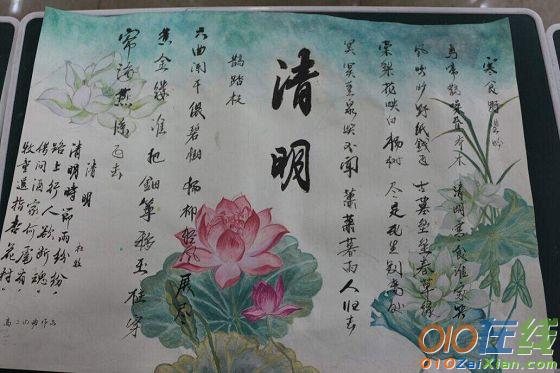 寒食野望吟
乌啼鹊噪昏乔木 清明寒食谁家哭
风吹旷野纸钱飞 古墓垒垒春草绿
棠梨花映白杨树 尽是死生别离处
冥冥重泉哭不闻 萧萧暮雨人归去
清明
鹊踏枝
六曲阑干偎碧树 杨柳轻风 展尽
黄金缕 谁把钿筝移玉柱 穿
帘海燕
飞去
清明
杜牧
清明时节雨纷纷,
路上行人欲断魂。
借问酒家何处有,
牧童遥指杏花村。
作品
010在线
010ZaiXian.com